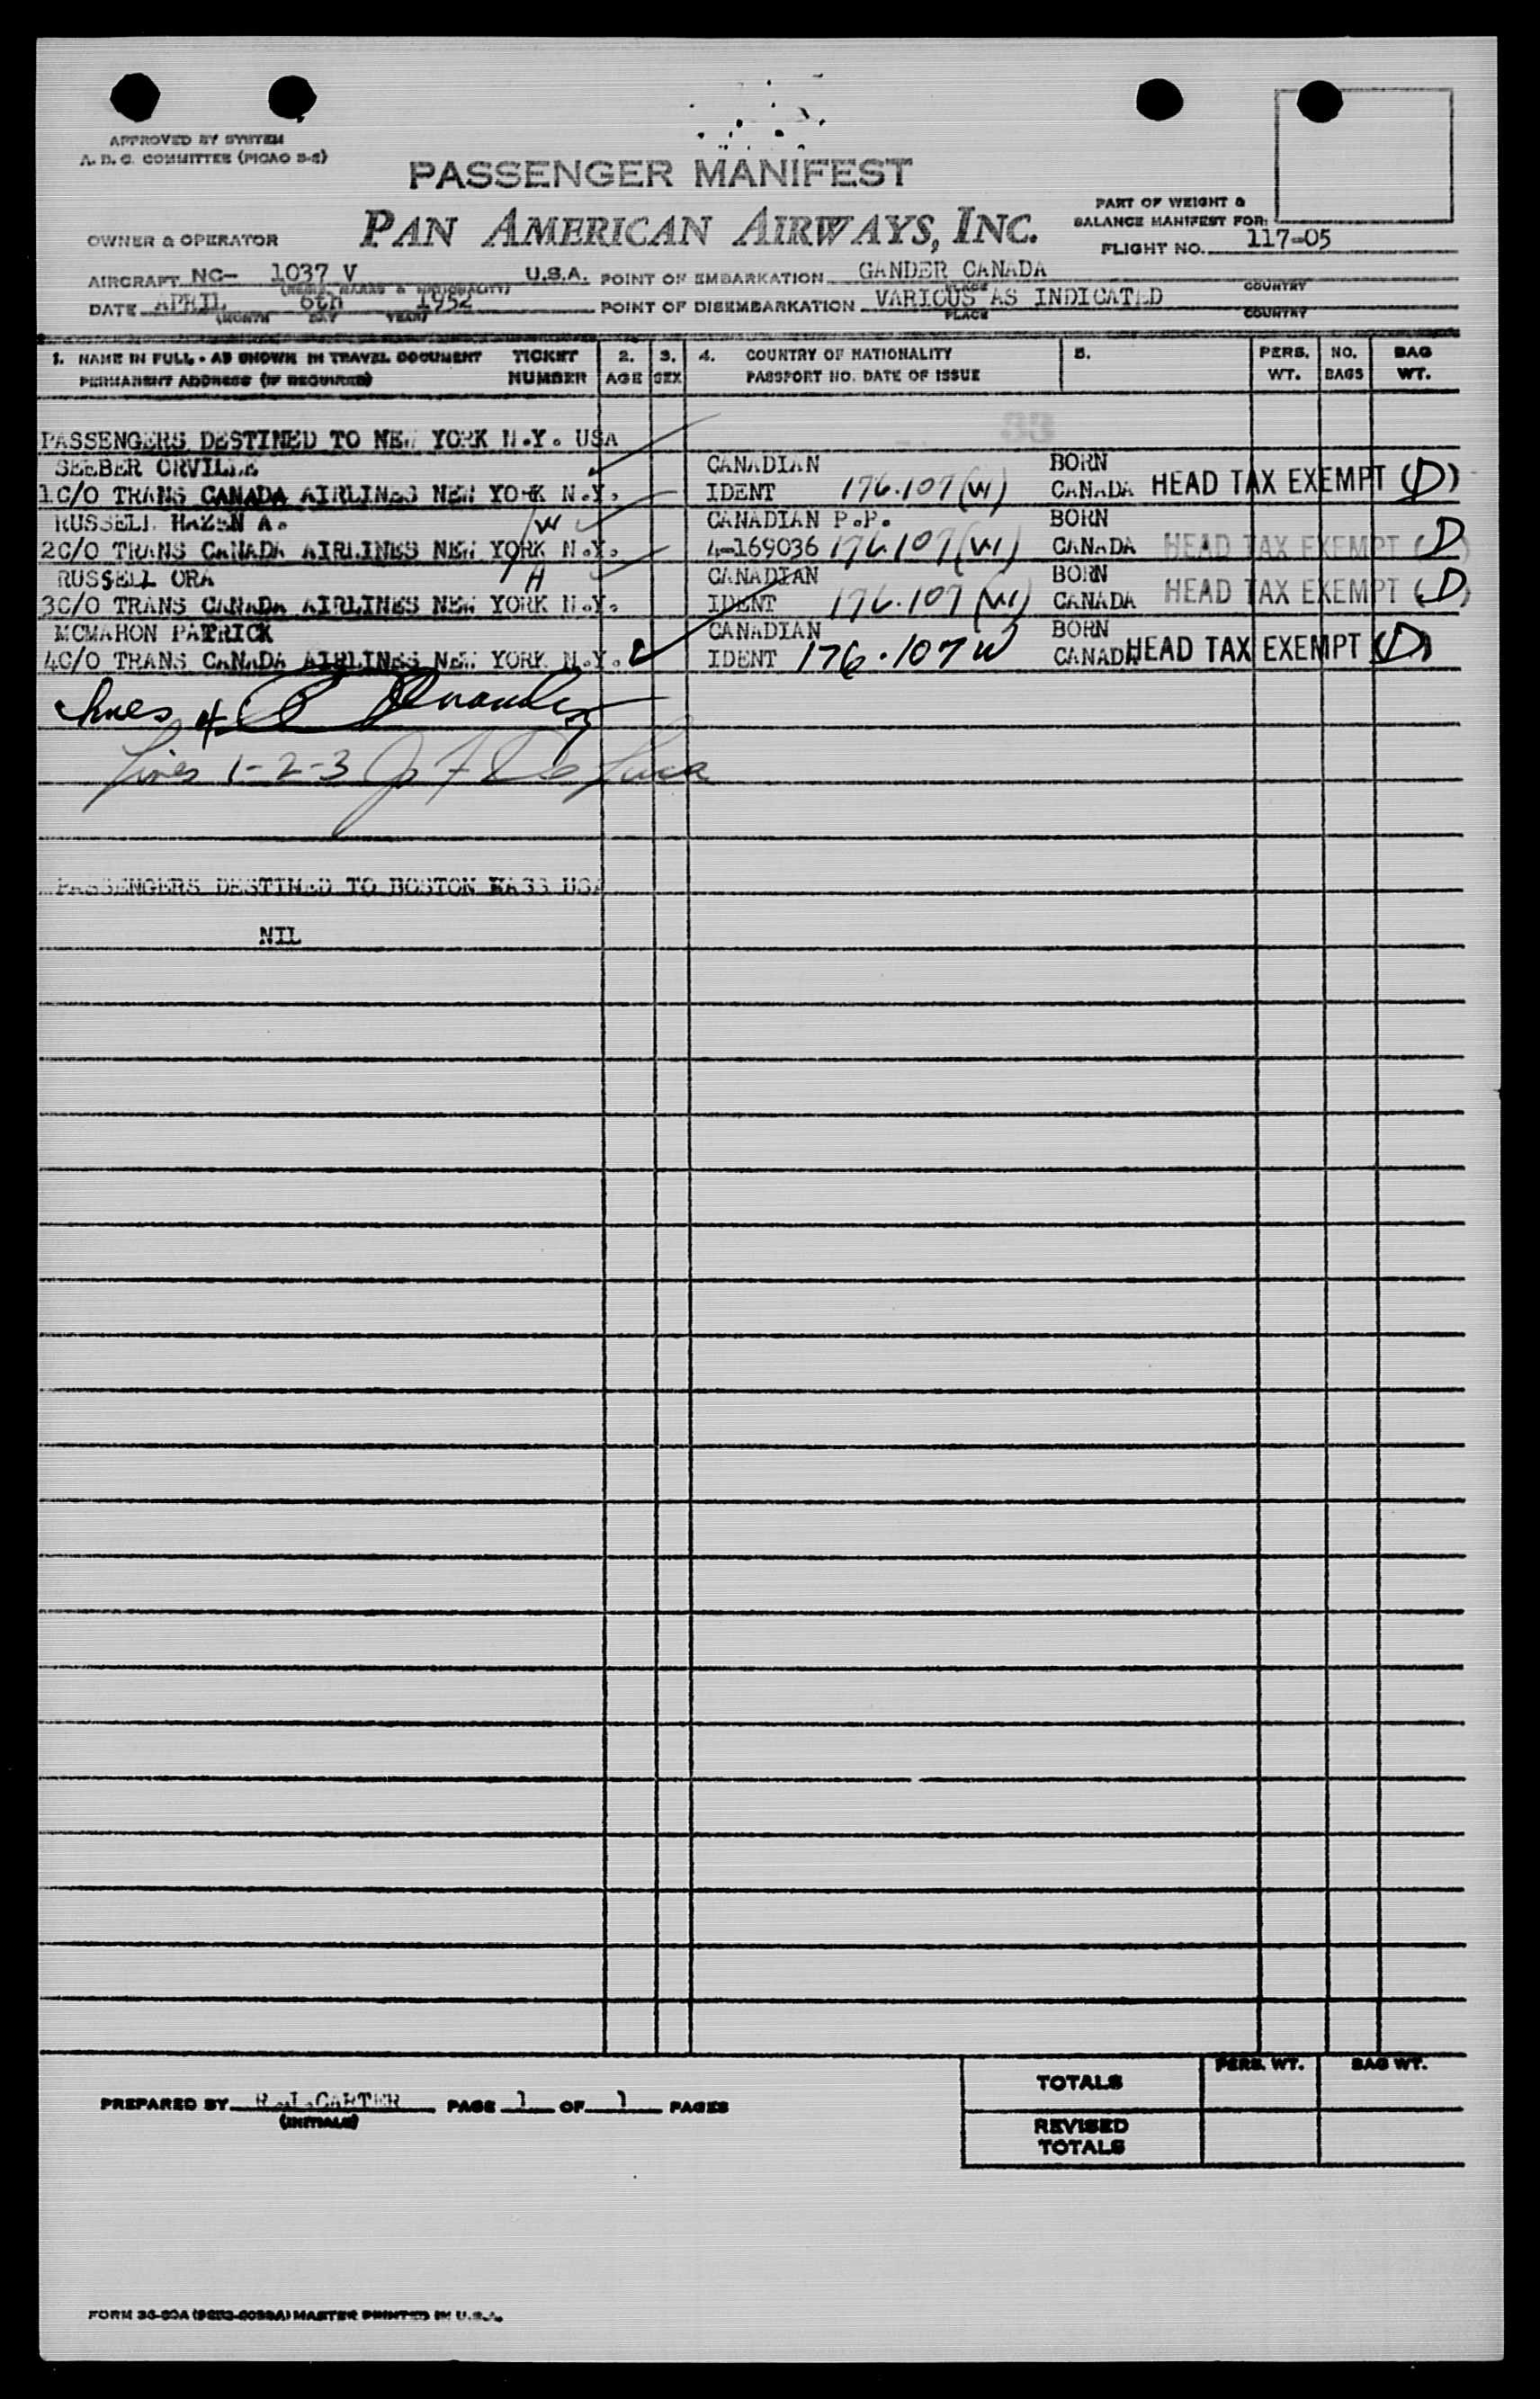 APPROVED BY SYSTEM
A. D. C. COMMITTEE (PICAO 3-2)
PASSENGER MANIFEST
PAN AMERICAN AIRWAYS, INC.
PART OF WEIGHT &
BALANCE MANIFEST FOR:
OWNER & OPERATOR
FLIGHT NO. 117-05
AIRCRAFT NC- 1037 V U.S.A. POINT OF EMBARKATION GANDER CANADA
PLACE COUNTRY
DATE APRIL 6th 1952 POINT OF DISEMBARKATION VARIOUS AS INDICATED
(MONTH DAY YEAR) PLACE COUNTRY
1. NAME IN FULL - AS SHOWN IN TRAVEL DOCUMENT TICKET 2. 3. 4. COUNTRY OF NATIONALITY 5. PERS. NO. BAG
PERMANENT ADDRESS (IF REQUIRED) NUMBER AGE SEX PASSPORT NO. DATE OF ISSUE WT. BAGS WT.
PASSENGERS DESTINED TO NEW YORK N.Y. USA
SEEBER ORVILLE CANADIAN BORN
1 C/O TRANS CANADA AIRLINES NEW YORK N.Y. IDENT 176.107(W) CANADA HEAD TAX EXEMPT (D)
RUSSELL HAZEN A. W CANADIAN P.P. BORN
2 C/O TRANS CANADA AIRLINES NEW YORK N.Y. 4-169036 176.107(W) CANADA HEAD TAX EXEMPT (D)
RUSSELL ORA H CANADIAN BORN
3 C/O TRANS CANADA AIRLINES NEW YORK N.Y. IDENT 176.107(W) CANADA HEAD TAX EXEMPT (D)
MCMAHON PATRICK CANADIAN BORN
4 C/O TRANS CANADA AIRLINES NEW YORK N.Y. IDENT 176.107 W CANADA HEAD TAX EXEMPT (D)
Lines 4
Lines 1-2-3
PASSENGERS DESTINED TO BOSTON MASS USA
NIL
PERS. WT. BAG WT.
TOTALS
PREPARED BY R.J.CARTER PAGE 1 OF 1 PAGES
(INITIALS)
REVISED
TOTALS
MASTER PRINTED IN U.S.A.